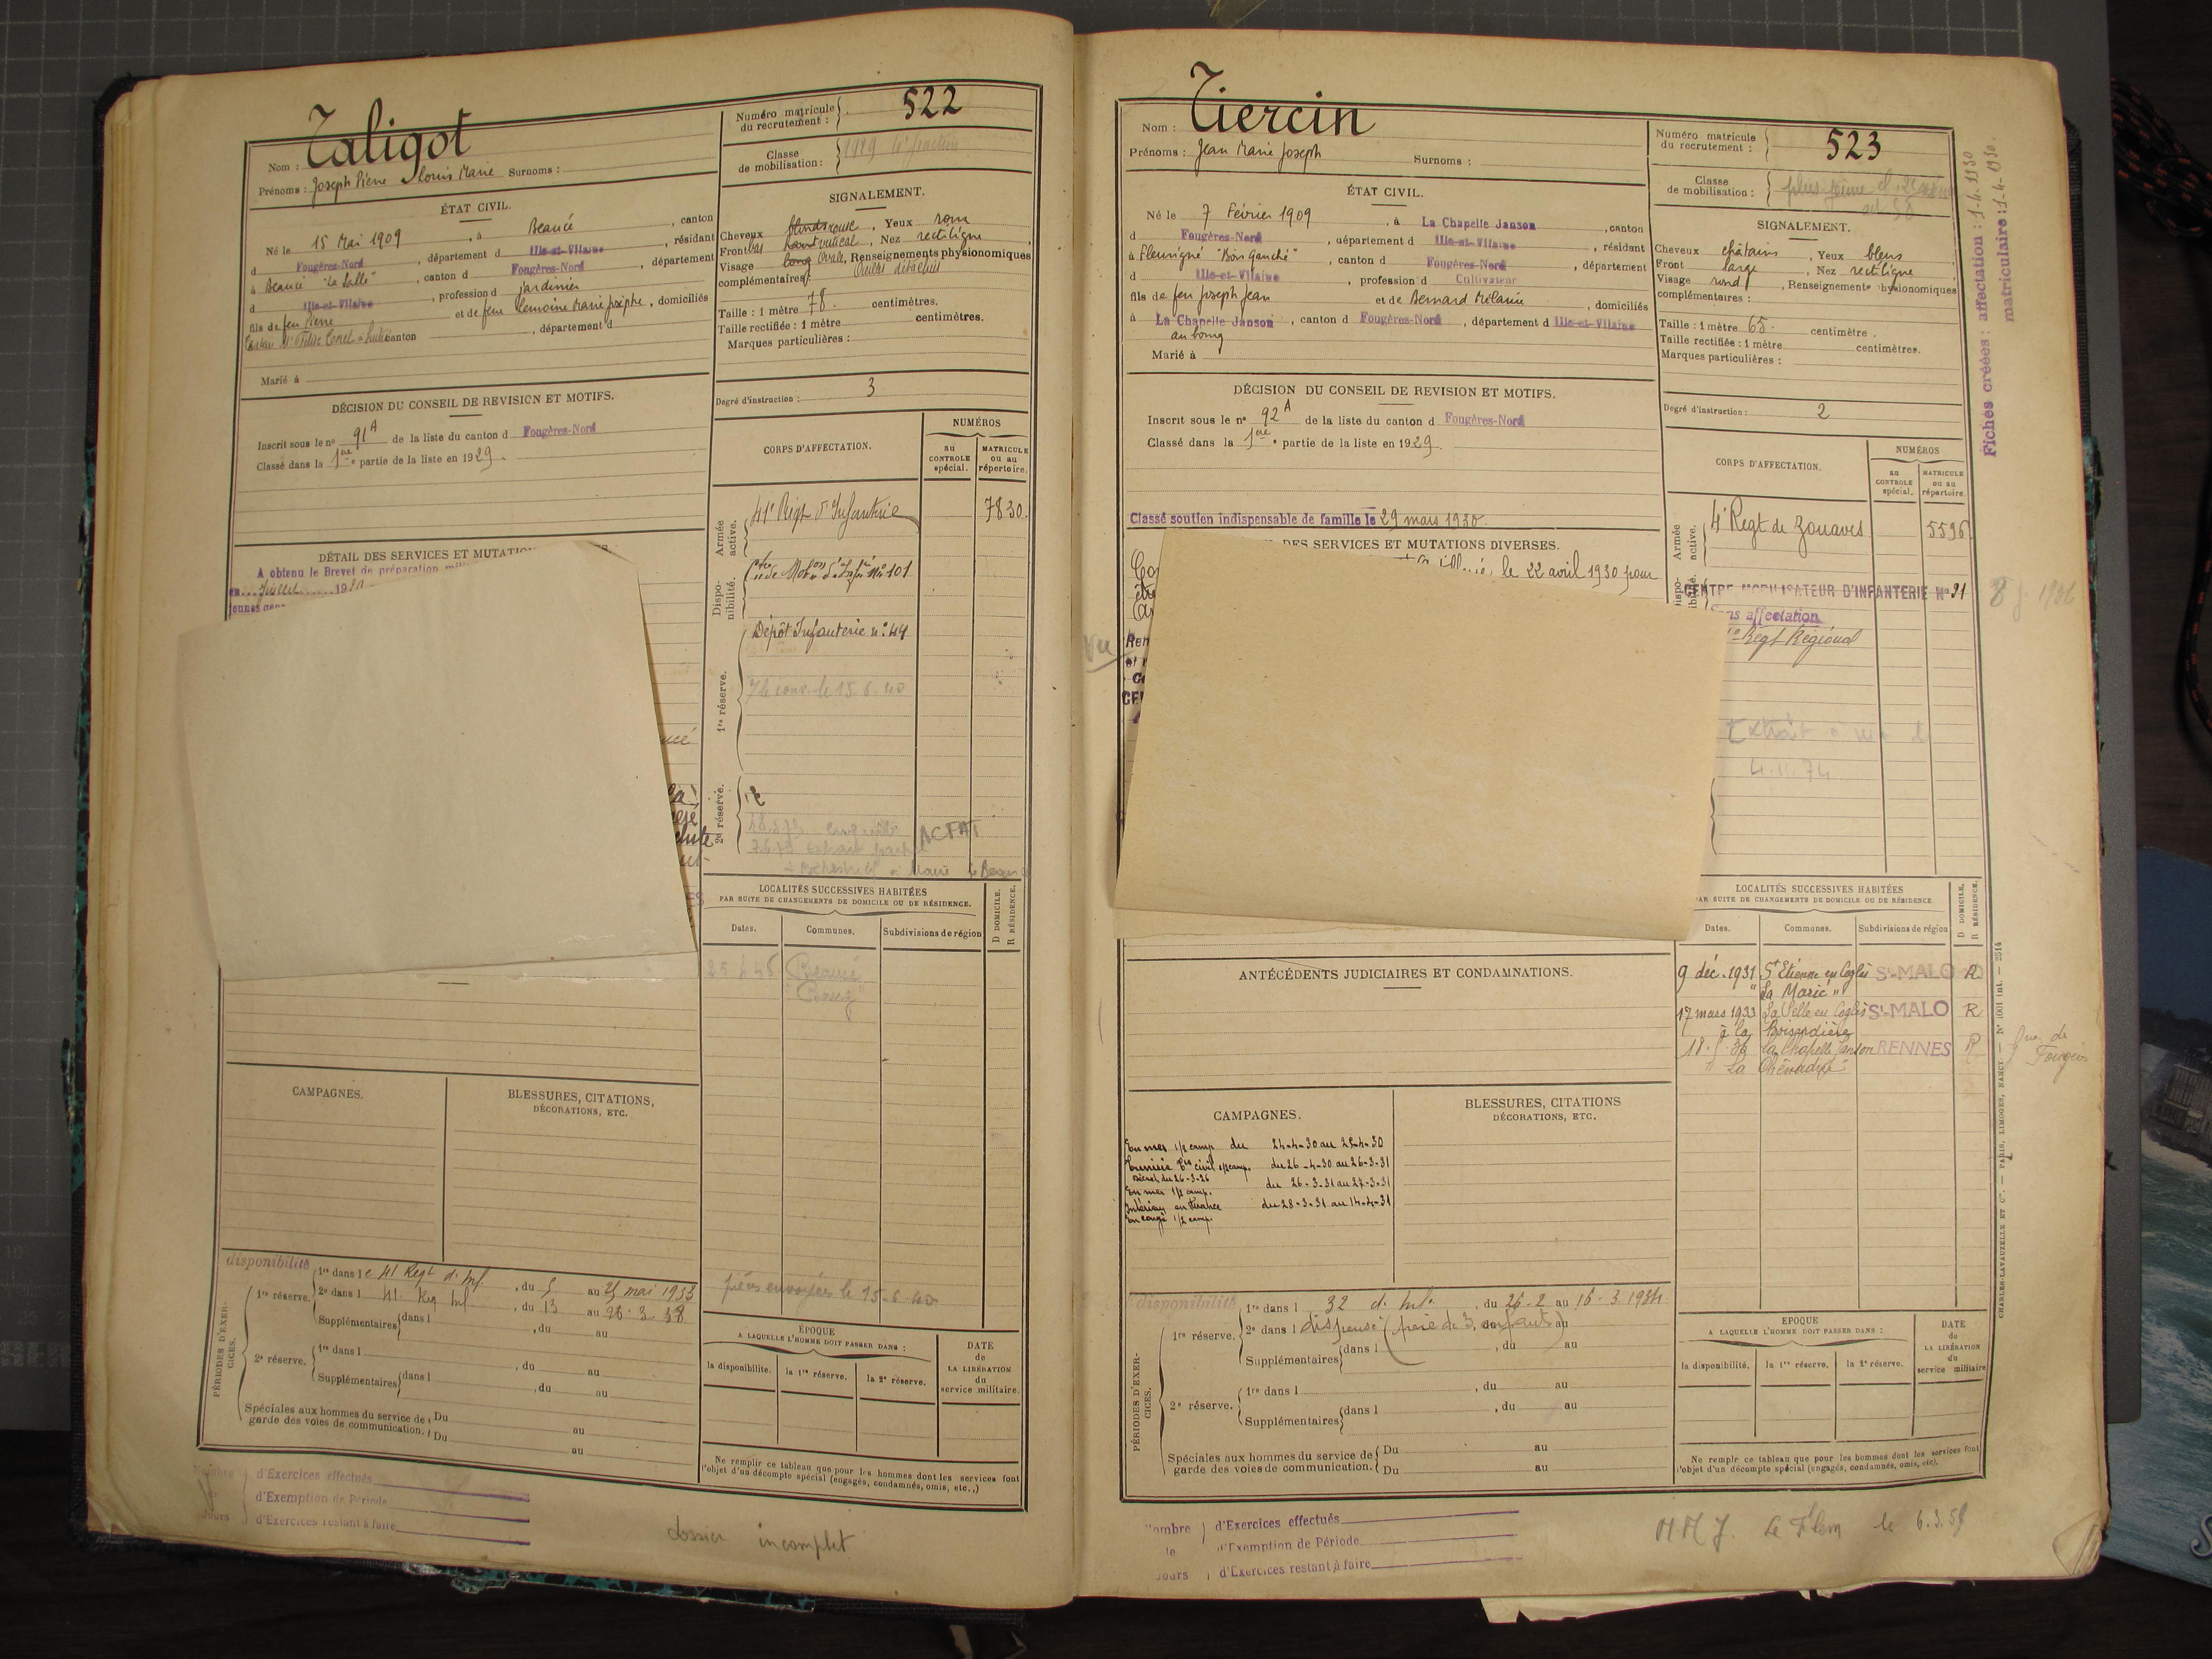 Nom : Taligot
Prénoms : Joseph Pierre Louis Marie Surnoms :
Numéro matricule du recrutement : 522
Classe de mobilisation : 1929
ÉTAT CIVIL.
Né le 15 Mai 1909, à Beaucé, canton
d Fougères-Nord, département d Ille-et-Vilaine, résidant
à Beaucé "La Salle", canton d Fougères-Nord, département
d Ille-et-Vilaine, profession d jardinier
fils de feu Pierre et de feue Lemoine Marie Josèphe, domiciliés
canton, département d
Marié à
SIGNALEMENT.
Cheveux blonds rouge, Yeux roux
Front bas haut vertical, Nez rectiligne
Visage long Ovale, Renseignements physionomiques
complémentaires :
Taille : 1 mètre 78. centimètres.
Taille rectifiée : 1 mètre centimètres.
Marques particulières :
Degré d'instruction : 3
DÉCISION DU CONSEIL DE REVISION ET MOTIFS.
Inscrit sous le nº 91 A de la liste du canton d Fougères-Nord
Classé dans la 1ère partie de la liste en 1929.
DÉTAIL DES SERVICES ET MUTATIO
A obtenu le Brevet de préparation
Juillet
jeunes
CORPS D'AFFECTATION.
NUMÉROS
au CONTROLE spécial.
MATRICULE ou au répertoire.
Armée active.
41e Régt d'Infanterie 7830
Disponibilité.
Ctre de Mobon d'Infie Nº 101
1re réserve.
Dépôt Infanterie nº 44
le 15.6.40
2e réserve.
ACFAT
LOCALITÉS SUCCESSIVES HABITÉES
PAR SUITE DE CHANGEMENTS DE DOMICILE OU DE RÉSIDENCE.
Dates. Communes. Subdivisions de région D DOMICILE. R RÉSIDENCE.
Beaucé
CAMPAGNES.
BLESSURES, CITATIONS, DÉCORATIONS, ETC.
pièces envoyées le 15-6-40
disponibilité
PÉRIODES D'EXERCICES.
1re réserve. 1re dans le 41 Regt d'Inf, du 5 au 25 mai 1933
2e dans l 41. Reg Inf, du 13 au 26.3.38
Supplémentaires dans l , du au
2e réserve. 1re dans l , du au
Supplémentaires dans l , du au
Spéciales aux hommes du service de garde des voies de communication. Du au
Du au
ÉPOQUE
A LAQUELLE L'HOMME DOIT PASSER DANS :
la disponibilité. la 1re réserve. la 2e réserve.
DATE de LA LIBÉRATION du service militaire.
Ne remplir ce tableau que pour les hommes dont les services font
l'objet d'un décompte spécial (engagés, condamnés, omis, etc.,)
Nombre de Jours
d'Exercices effectués
d'Exemption de Période
d'Exercices restant à faire
dossier incomplet
Nom : Tiercin
Prénoms : Jean Marie Joseph Surnoms :
Numéro matricule du recrutement : 523
Classe de mobilisation :
ÉTAT CIVIL.
Né le 7 Février 1909, à La Chapelle Janson, canton
d Fougères-Nord, département d Ille-et-Vilaine, résidant
à Fleurigné "Bois Gauché", canton d Fougères-Nord, département
d Ille-et-Vilaine, profession d Cultivateur
fils de feu Joseph Jean et de Bernard Mélanie, domiciliés
à La Chapelle Janson, canton d Fougères-Nord, département d Ille-et-Vilaine
au bourg
Marié à
SIGNALEMENT.
Cheveux châtains, Yeux bleus
Front large, Nez rectiligne
Visage rond, Renseignements physionomiques
complémentaires :
Taille : 1 mètre 65. centimètre .
Taille rectifiée : 1 mètre centimètres.
Marques particulières :
Degré d'instruction : 2
Fiches créées : affectation : 1-4-1930
matriculaire : 1-4-1930.
DÉCISION DU CONSEIL DE REVISION ET MOTIFS.
Inscrit sous le nº 92 A de la liste du canton d Fougères-Nord
Classé dans la 1ère partie de la liste en 1929.
Classé soutien indispensable de famille le 29 mars 1930.
DES SERVICES ET MUTATIONS DIVERSES.
le 22 avril 1930 pour
Vu
CORPS D'AFFECTATION.
NUMÉROS
au CONTROLE spécial.
MATRICULE ou au répertoire.
Armée active.
4e Regt de Zouaves 5596
CENTRE MOBILISATEUR D'INFANTERIE Nº 31
ns affectation
Regt Régional
4.11.74
LOCALITÉS SUCCESSIVES HABITÉES
PAR SUITE DE CHANGEMENTS DE DOMICILE OU DE RÉSIDENCE.
Dates. Communes. Subdivisions de région D DOMICILE, R RÉSIDENCE.
9 déc. 1931 St Etienne en Coglès St-MALO R
"La Marié"
17 mars 1933 La Selle en Coglès St-MALO R
à la Boisardière
La Chapelle Janson RENNES R
ANTÉCÉDENTS JUDICIAIRES ET CONDAMNATIONS.
CAMPAGNES.
BLESSURES, CITATIONS DÉCORATIONS, ETC.
En mer 1/2 camp du 24-4-30 au 25-4-30
Tunisie Er civil 1/2 camp. du 26-4-30 au 26-3-31
décret du 26-3-26
En mer 1/2 camp. du 26-3-31 au 27-3-31
Intérieur en France du 28-3-31 au 14-4-31
En congé 1/2 camp.
disponibilité
PÉRIODES D'EXERCICES.
1re réserve. 1re dans l 32 d. Inf., du 26-2 au 16-3.1934
2e dans l dispensé (père de 3 enfants) au
Supplémentaires dans l , du au
2e réserve. 1re dans l , du au
Supplémentaires dans l , du au
Spéciales aux hommes du service de garde des voies de communication. Du au
Du au
EPOQUE
A LAQUELLE L'HOMME DOIT PASSER DANS :
la disponibilité. la 1re réserve. la 2e réserve.
DATE du LA LIBÉRATION du service militaire
Ne remplir ce tableau que pour les hommes dont les services font
l'objet d'un décompte spécial (engagés, condamnés, omis, etc).
CHARLES-LAVAUZELLE ET Cie. — PARIS, LIMOGES, NANCY. — Nº 1001 int. — 2514
ombre de Jours
d'Exercices effectués
d'Exemption de Période
d'Exercices restant à faire
Le Flem le 6.3.59